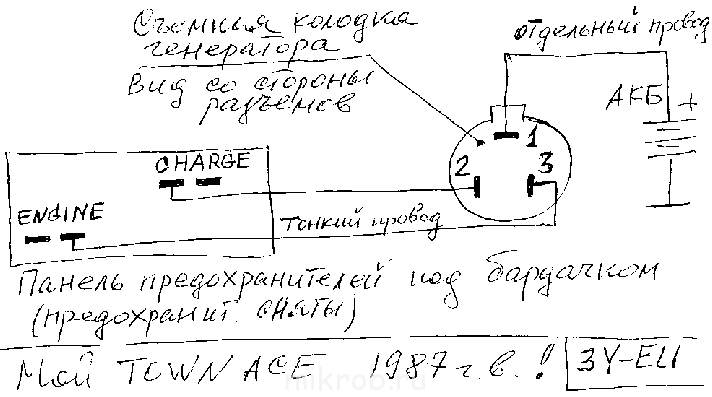 Съемная колодка
генератора
Вид со стороны
разъемов
отдельный провод
АКБ
+
1
2
3
CHARGE
ENGINE
Тонкий провод
Панель предохранителей под бардачком
(предохранит. сняты)
Мой TOWN ACE 1987 г.в.!
3Y-EU